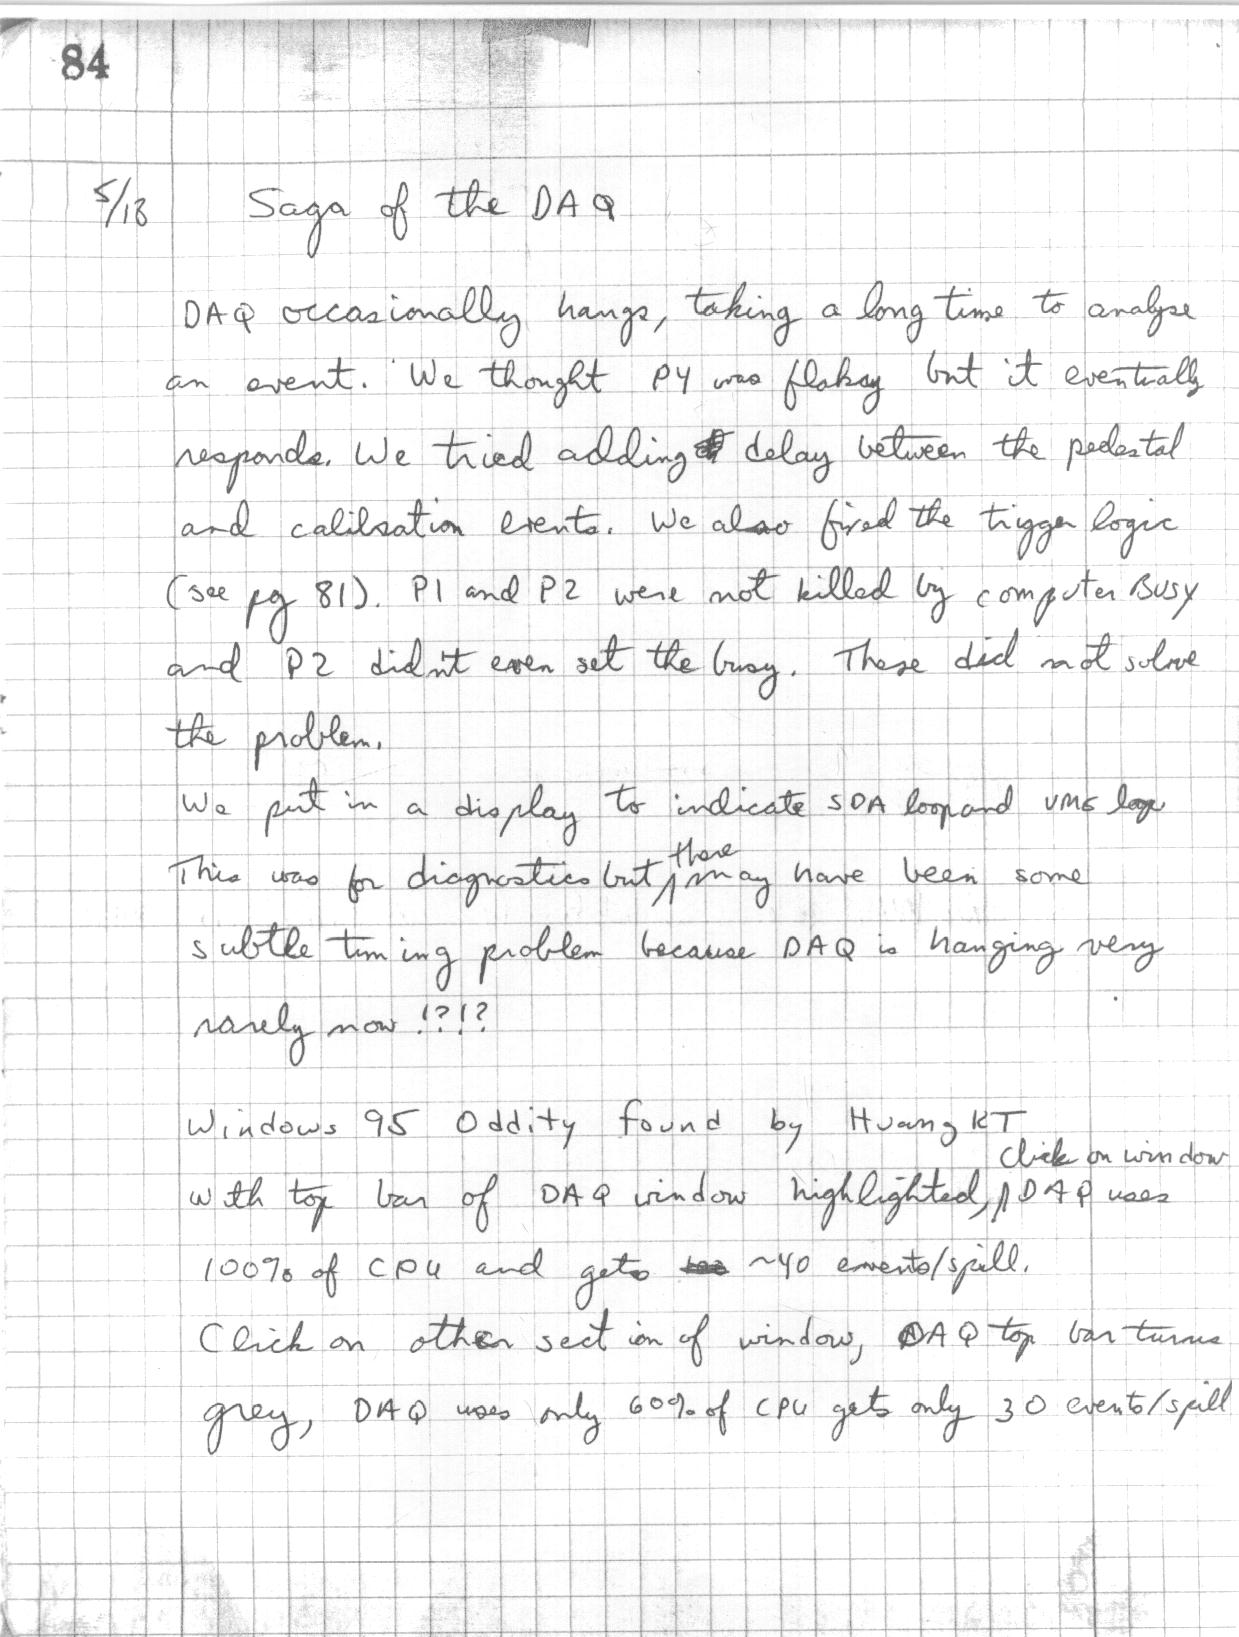 84
5/18 Saga of the DAQ
DAQ occasionally hangs, taking a long time to analyse
an event. We thought P4 was flakey but it eventually
responds. We tried adding delay between the pedestal
and calibration events. We also fixed the trigger logic
(see pg 81). P1 and P2 were not killed by computer Busy
and P2 didn't even set the busy. These did not solve
the problem.
We put in a display to indicate SDA loop and VME loop
This was for diagnostics but there may have been some
subtle timing problem because DAQ is hanging very
rarely now !?!?
Windows 95 Oddity found by Huang KT
With top bar of DAQ window highlighted, click on window DAQ uses
100% of CPU and gets ~40 events/spill.
Click on other section of window, DAQ top bar turns
grey, DAQ uses only 60% of CPU gets only 30 events/spill